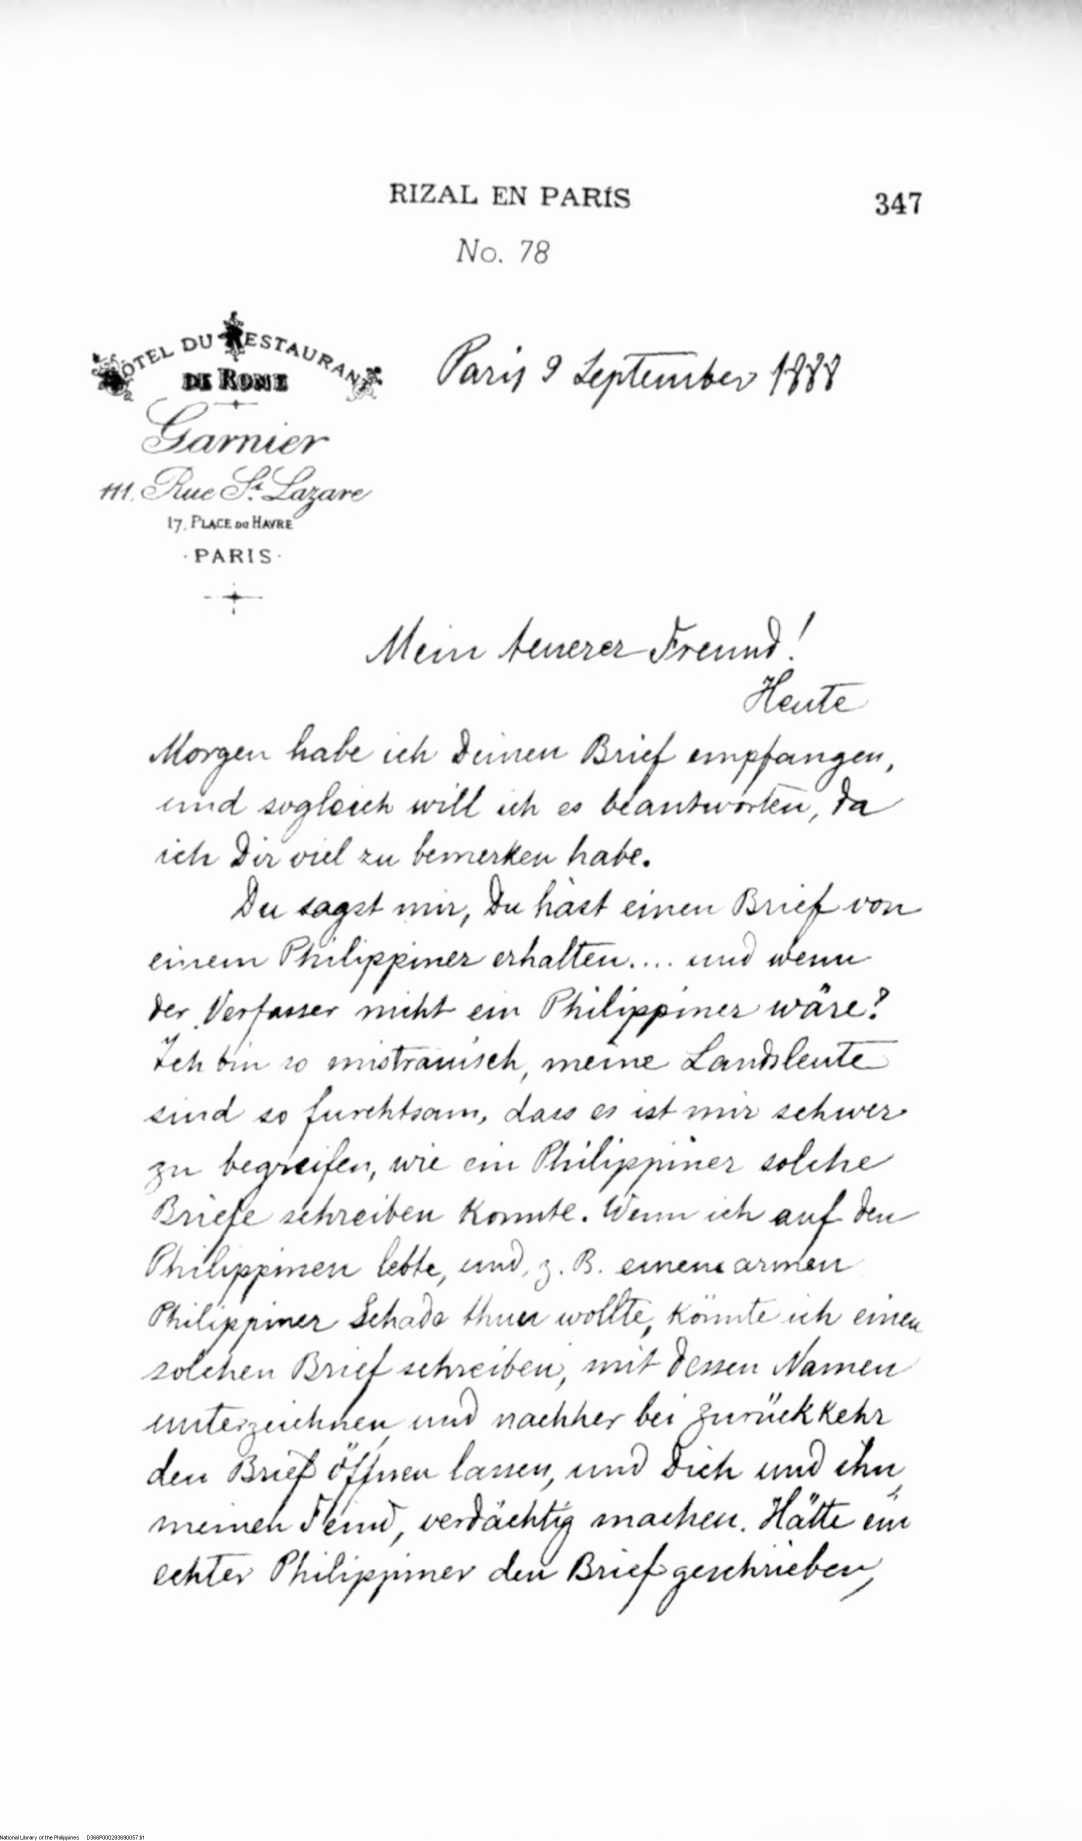 RIZAL EN PARÍS
347
No. 78
HÔTEL DU RESTAURANT
DE ROME
Garnier
111. Rue St. Lazare
17, PLACE DU HAVRE
·PARIS·
Paris 9 September 1888
Mein teuerer Freund!
Heute
Morgen habe ich Deinen Brief empfangen,
und sogleich will ich es beantworten, da
ich Dir viel zu bemerken habe.
Du sagst mir, Du hast einen Brief von
einem Philippiner erhalten.... und wenn
der Verfasser nicht ein Philippiner wäre?
Ich bin so mistrauisch, meine Landsleute
sind so furchtsam, dass es ist mir schwer
zu begreifen, wie ein Philippiner solche
Briefe schreiben konnte. Wenn ich auf den
Philippinen lebte, und, z. B. einem armen
Philippiner Schade thun wollte, könnte ich einen
solchen Brief schreiben, mit dessen Namen
unterzeichnen und nachher bei Zurückkehr
den Brief öffnen lassen, und Dich und ihn,
meinen Feind, verdächtig machen. Hätte ein
echter Philippiner den Brief geschrieben,
National Library of the Philippines